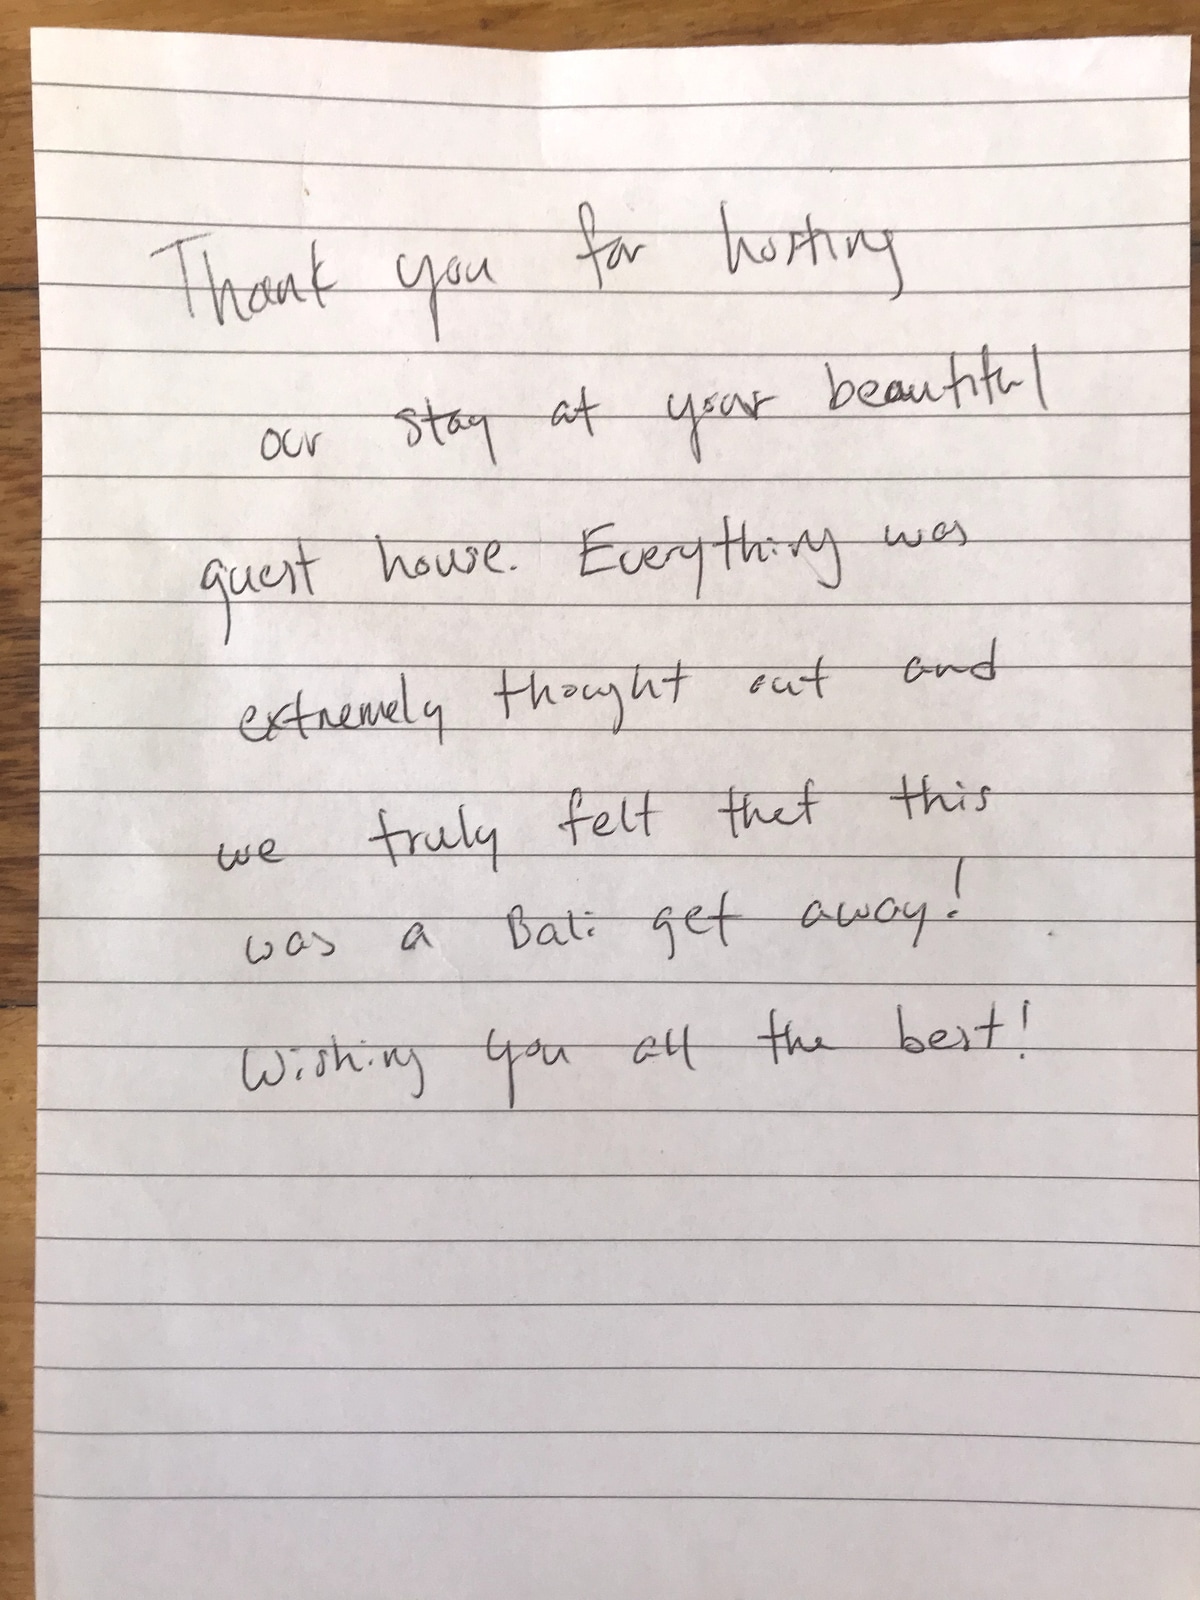 Thank you for hosting
our stay at your beautiful
guest house. Everything was
extremely thought out and
we truly felt that this
was a Bali get away!
Wishing you all the best!